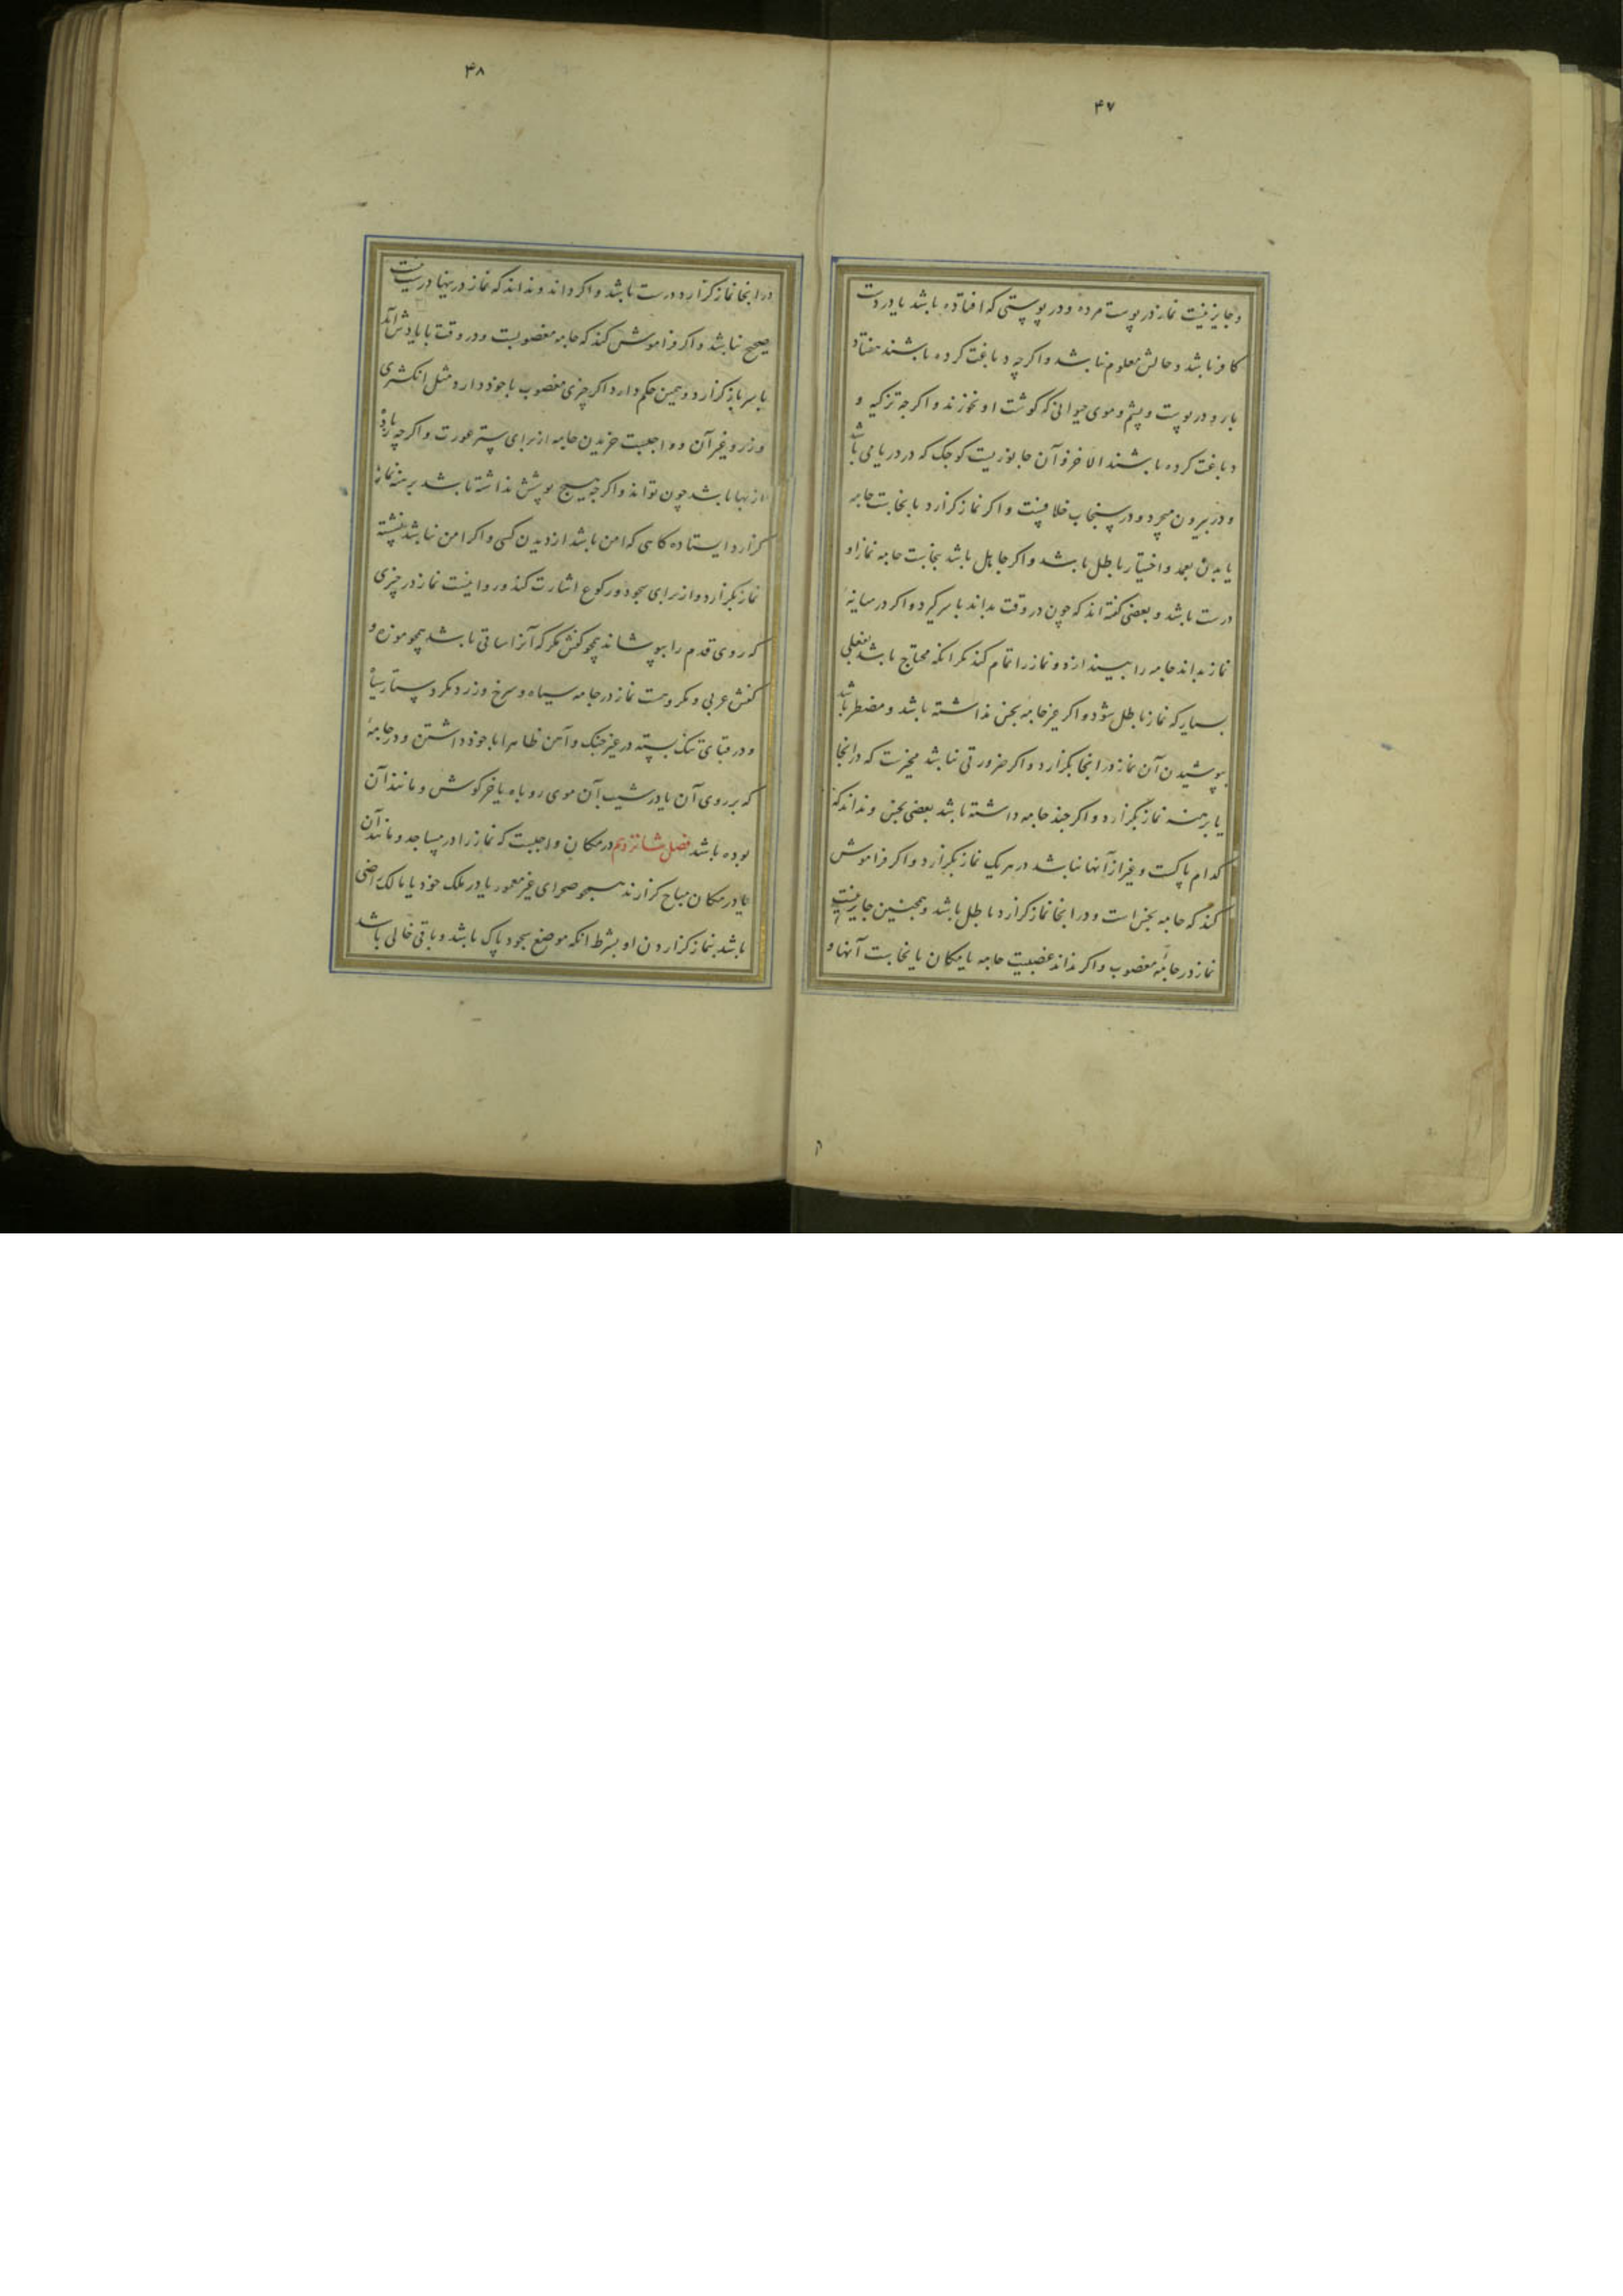 ۴۷
و جایز نیست نماز در پوست مرده و در پوستی که افتاده باشد یا در دست
کافر باشد و حالش معلوم نباشد و اگر چه دباغت کرده باشند هفتاد
بار و در پوست و پشم و موی حیوانی که گوشت او نخورند و اگر چه تزکیه و
دباغت کرده باشند الا خز و آن جانوریست کوچک که در دریا می باشد
و در بیرون میچرد و در سنجاب خلافیست و اگر نماز گزارد با نجاست جامه
یا بدن بعمد و اختیار باطل باشد و اگر جاهل باشد بنجاست جامه نماز او
درست باشد و بعضی گفته اند که چون در وقت بداند با سر گیرد و اگر در میانهٔ
نماز بداند جامه را بیندازد و نماز را تمام کند مگر انکه محتاج باشد بفعلی
بسیار که نماز باطل شود و اگر جز جامهٔ نجس نداشته باشد و مضطر باشد
بپوشیدن آن نماز در انجا بگزارد و اگر ضرورتی نباشد مخیرست که در انجا
یا برهنه نماز بگزارد و اگر چند جامه داشته باشد بعضی نجس و نداند که
کدام پاکست و غیر از آنها نباشد در هر یک نماز بگزارد و اگر فراموش
کند که جامه نجس است و در انجا نماز گزارد باطل باشد و همچنین جایز نیست
نماز در جامهٔ مغصوب و اگر نداند غصبیت جامه یا مکان یا نجاست آنها و
۴۸
در انجا نماز گزارد درست باشد و اگر داند و نداند که نماز در ینها درست نیست
صحیح نباشد و اگر فراموش کند که جامه مغصوبست و در وقت با یادش آید
با سر باز گزارد و همین حکم دارد اگر چیزی مغصوب با خود دارد مثل انگشتری
و زر و غیر آن و واجبست خریدن جامه از برای ستر عورت و اگر چه زیاده
از بها باشد چون تواند و اگر هیچ پوشش نداشته باشد برهنه نماز
گزارد ایستاده گاهی که امن باشد از دیدن کسی و اگر امن نباشد نشسته
نماز بگزارد و از برای سجود و رکوع اشارت کند و روا نیست نماز در چیزی
که روی قدم را بپوشاند همچو کفش مگر که آنرا ساقی باشد همچو موزه و
کفش عربی و مکروهست نماز در جامه سیاه و سرخ و زرد مگر دستار سیاه
و در قبای تنک بسته در غیر جنک و آهن ظاهرا با خود داشتن و در جامهٔ
که بر روی آن یا در شیب آن موی روباه یا خرگوش و مانند آن
بوده باشد فصل شانزدهم در مکان واجبست که نماز را در مساجد و مانند آن
یا در مکان مباح گزارند همچو صحرای غیر معمور یا در ملک خود یا مالک راضی
باشد بنماز گزاردن او بشرط انکه موضع سجود پاک باشد و باقی خالی باشد